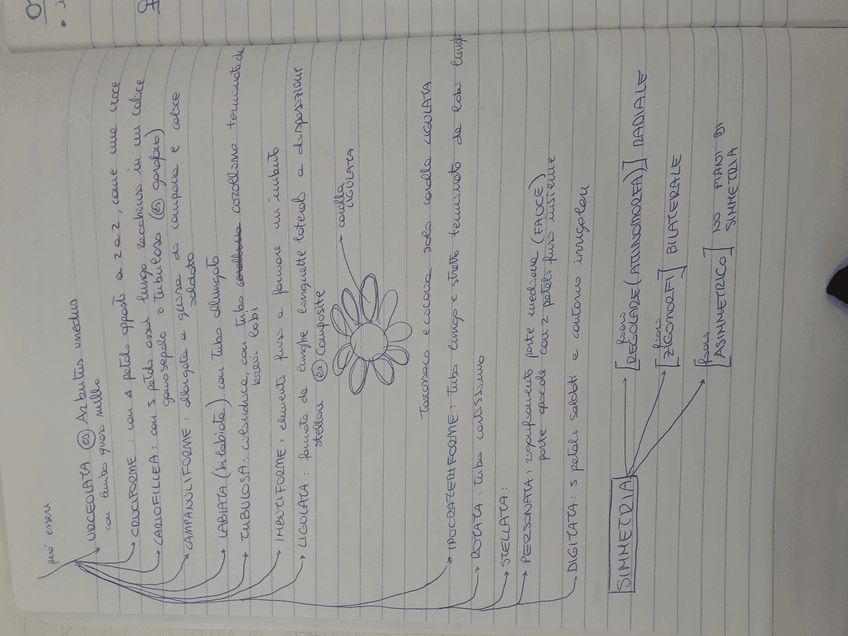 può essere
URCEOLATA (es) Arbutus unedus
con lembo quasi nullo
CRUCIFORME: con 4 petali opposti a 2 a 2, come una croce
CARIOFILLEA: con 5 petali assai lungo racchiusi in un calice
gamosepalo o tubuloso (es) garofano)
CAMPANULIFORME: allargata a guisa di campana e calice
saldato
LABIATA (bilabiata) con tubo allungato
TUBULOSA: cilindrica, con tubo corollino terminato da
brevi lobi
IMBUTIFORME: elementi fusi a formare un imbuto
LIGULATA: formata da lunghe linguette laterali a disposizione
stellare (es) Composite
corolla
LIGULATA
Tarassaco e cicoria solo corolla LIGULATA
IPOCRATERIFORME: tubo lungo e stretto terminato da lobi lunghi
ROTATA: tubo cortissimo
STELLATA:
PERSONATA: rigonfiamento parte mediana (FAUCE)
parte apicale con 2 petali fusi insieme
DIGITATA: 5 petali saldati e contorno irregolare
SIMMETRIA
fiori
[REGOLARE (ATTINOMORFA)] RADIALE
fiori
[ZIGOMORFI] BILATERALE
fiori
[ASIMMETRICO] NO PIANI DI
SIMMETRIA